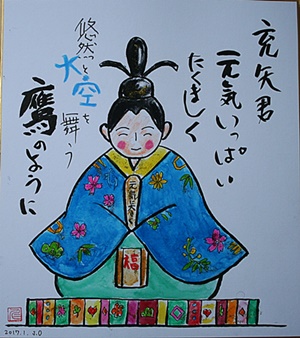 充矢君
元気いっぱい
たくましく
悠然っと
大空を
舞う
鷹のように
福
2017.1.20